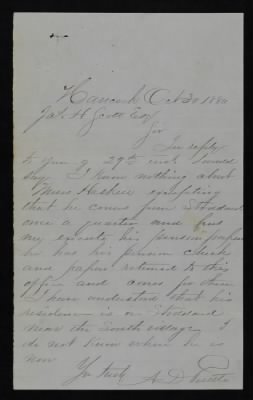 Hancock Oct 30 1880
Jas. H. Scott Esq
Sir
In reply
to your of 29th inst I would
say I know nothing about
Haskell excepting
that he comes from Stoddard
once a quarter and has
my execute his pension papers
he has his pension check
and papers returned to this
office and comes for them
I have understood that his
residence is in Stoddard
near the South village I
do not know where he is
now
Yr truly A. D.